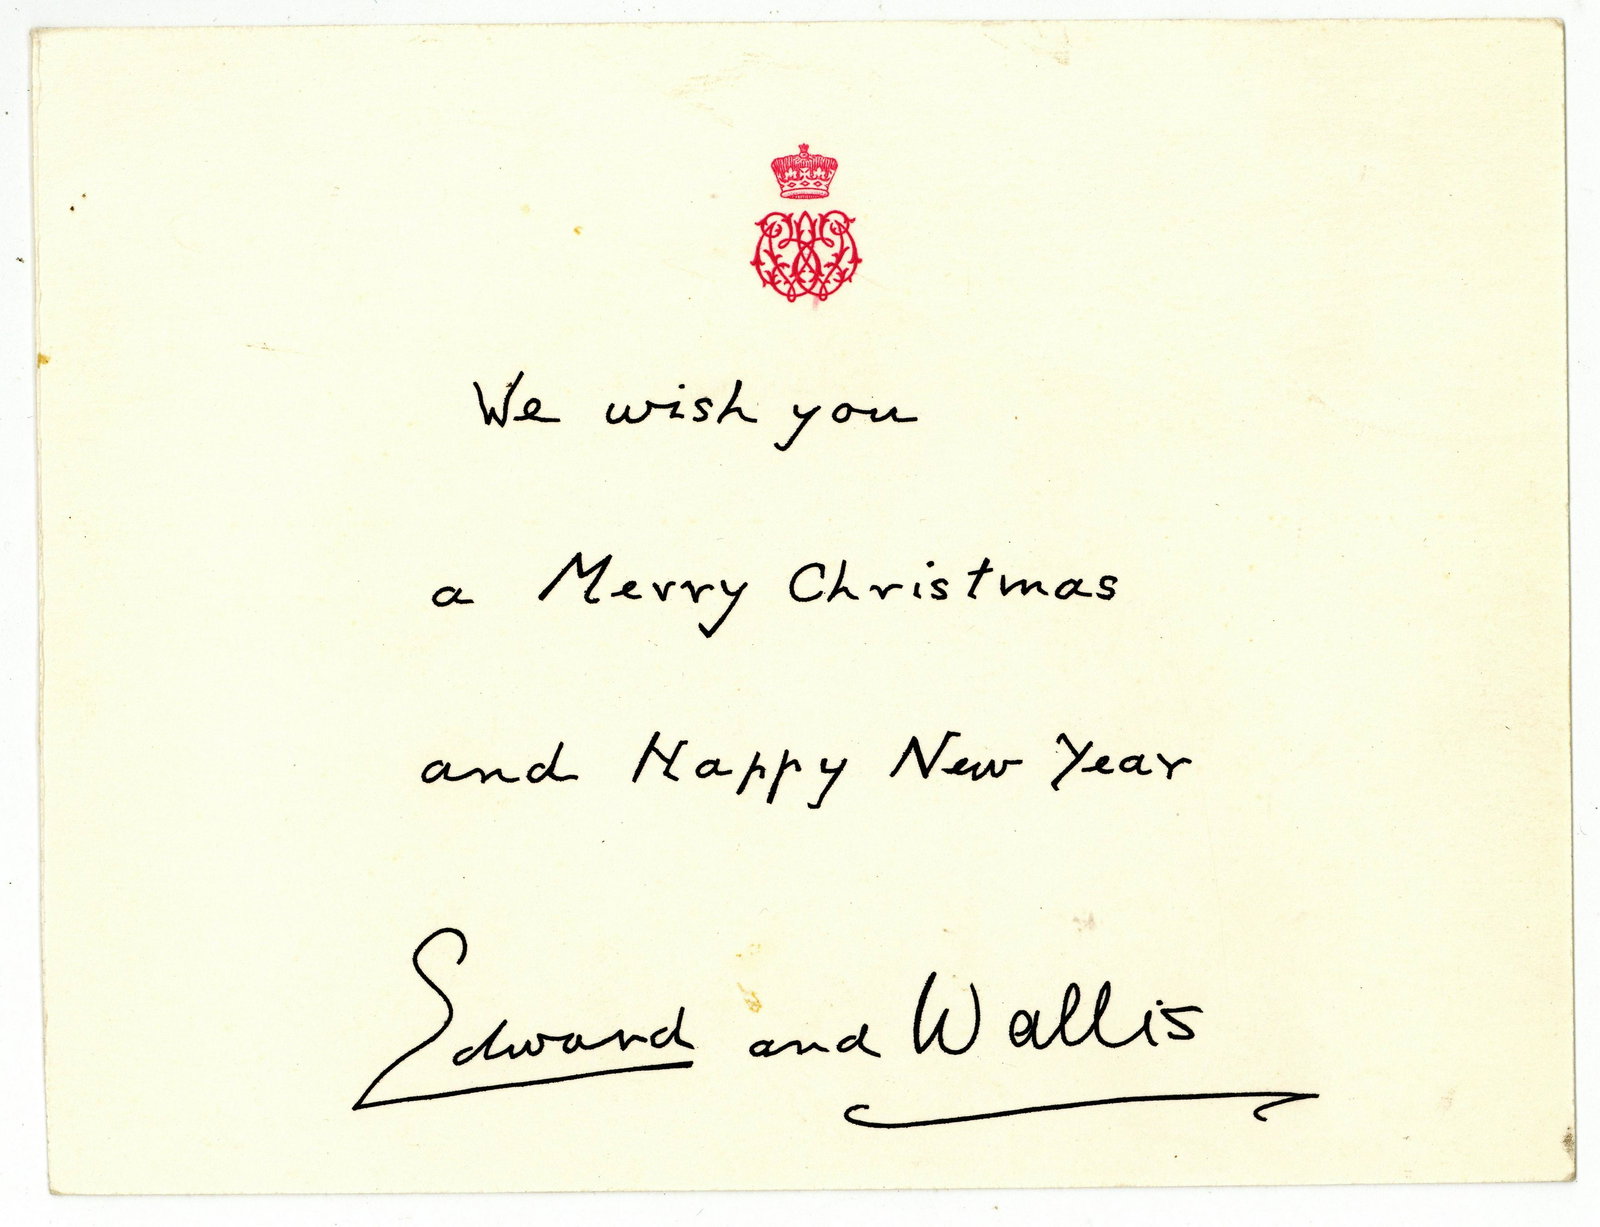 We wish you
a Merry Christmas
and Happy New Year
Edward and Wallis